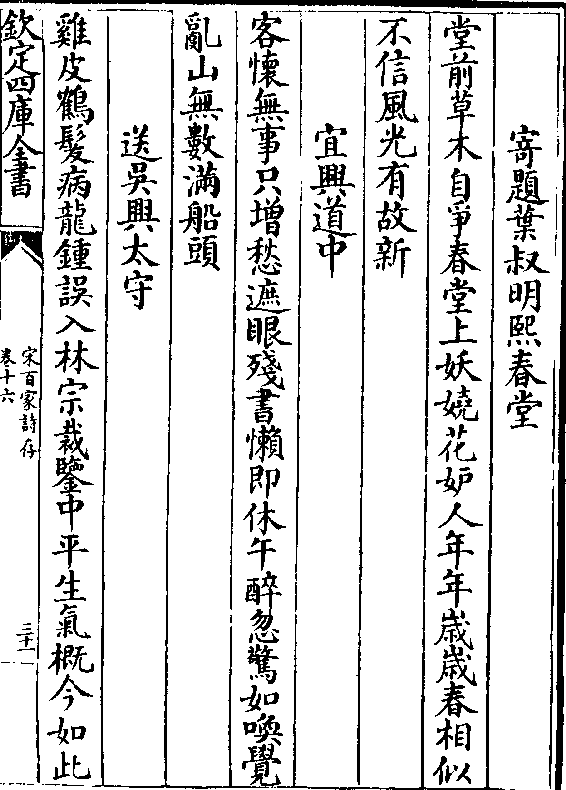 寄題葉叔明熙春堂
堂前草木自爭春堂上妖嬈花妒人年年歲歲春相似
不信風光有故新
宜興道中
客懷無事只增愁遮眼殘書懶即休午醉忽驚如喚覺
亂山無數滿船頭
送吳興太守
雞皮鶴髮病龍鍾誤入林宗裁鑒中平生氣概今如此
欽定四庫全書
宋百家詩存
卷十六
三十一